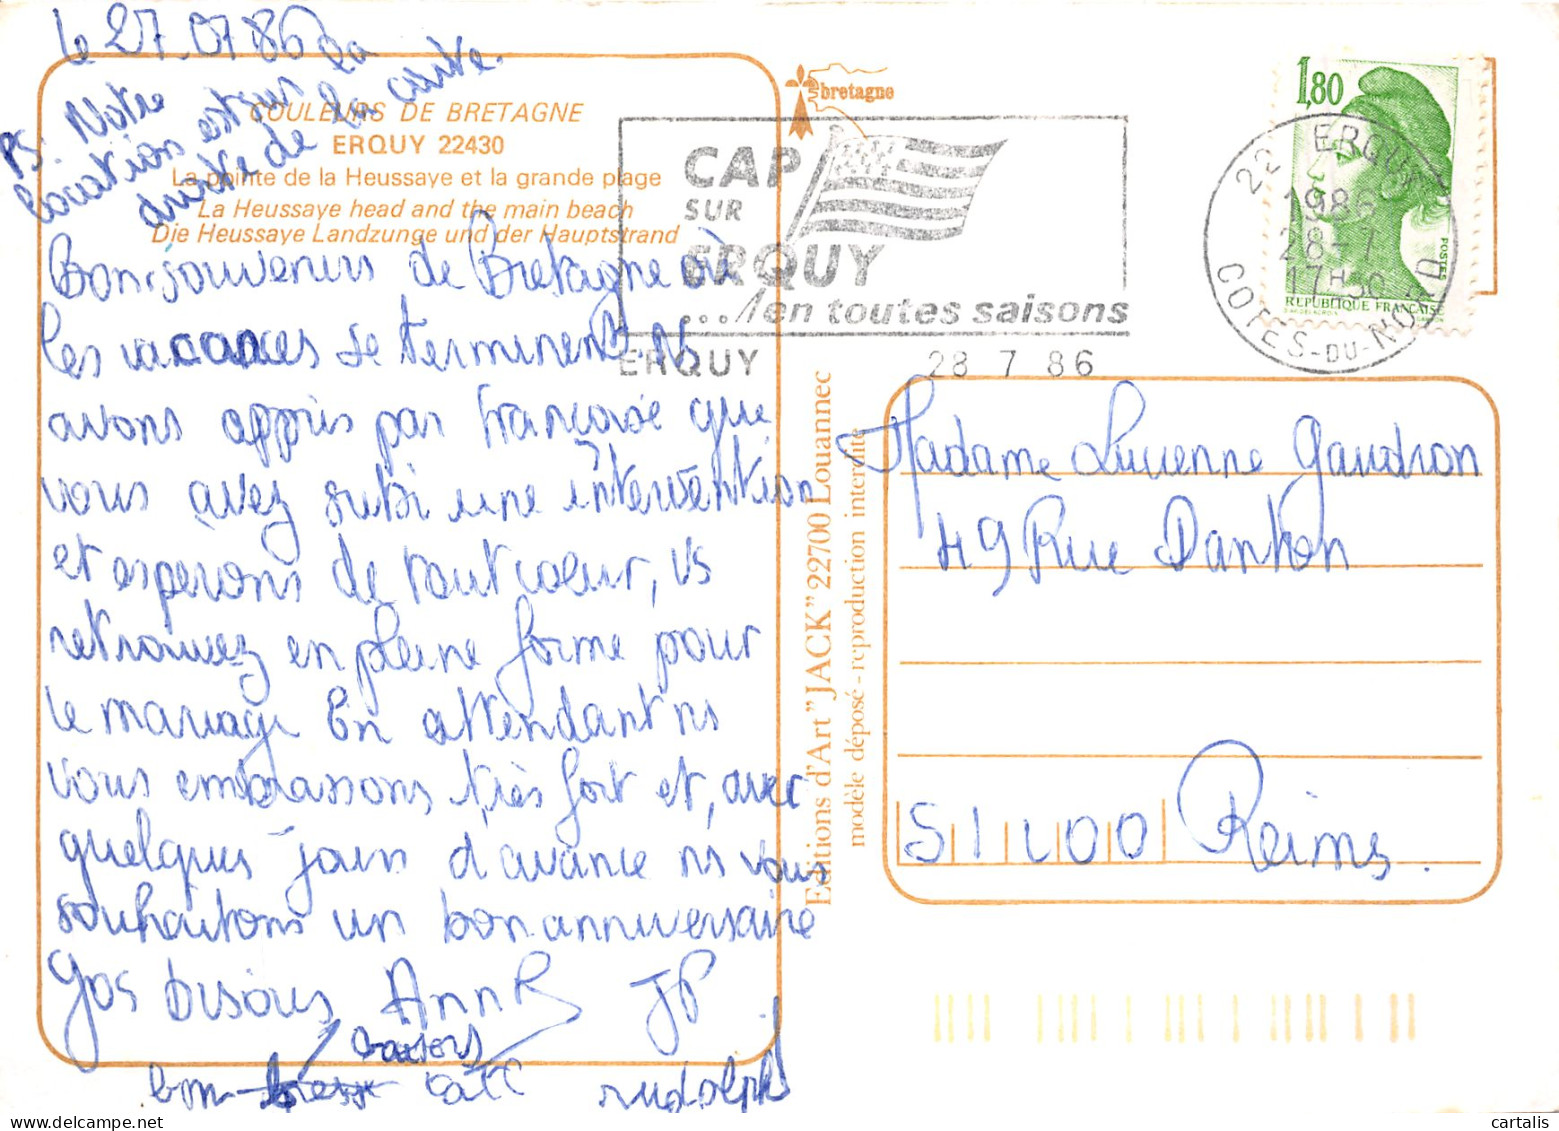 le 27.07.86
PS. Notre
location est sur la
droite de la carte.
COULEURS DE BRETAGNE
ERQUY 22430
La pointe de la Heussaye et la grande plage
La Heussaye head and the main beach
Die Heussaye Landzunge und der Hauptstrand
Bons souvenirs de Bretagne où
les vacances se terminent. Ns
avons appris par Françoise que
vous avez subi une intervention
et espérons de tout coeur, vs
retrouvez en pleine forme pour
le mariage En attendant ns
vous embrassons très fort et, avec
quelques jours d'avance ns vous
souhaitons un bon anniversaire
Gos bisous Ann JP
baisers
bon
rudolph
bretagne
CAP
SUR
ERQUY
... en toutes saisons
ERQUY 28 7 86
1,80
POSTES
REPUBLIQUE FRANÇAISE
22 ERQUY
1986
28-7
17H30
COTES-DU-NORD
Editions d'Art "JACK" 22700 Louannec
modèle déposé - reproduction interdite
Madame Lucienne Gaudron
49 Rue Danton
51100 Reims.
cartalis